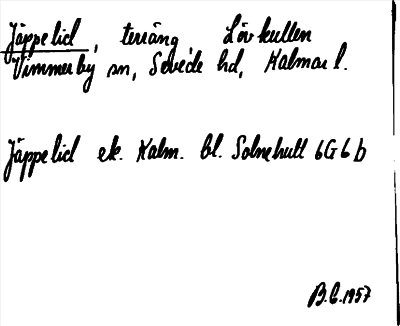 Jäppelid, terräng Lövkullen
Vimmerby sn, Sevede hd, Kalmar l.
Jäppelid ek. Kalm. bl. Solnehult 6G6b
B.C. 1957